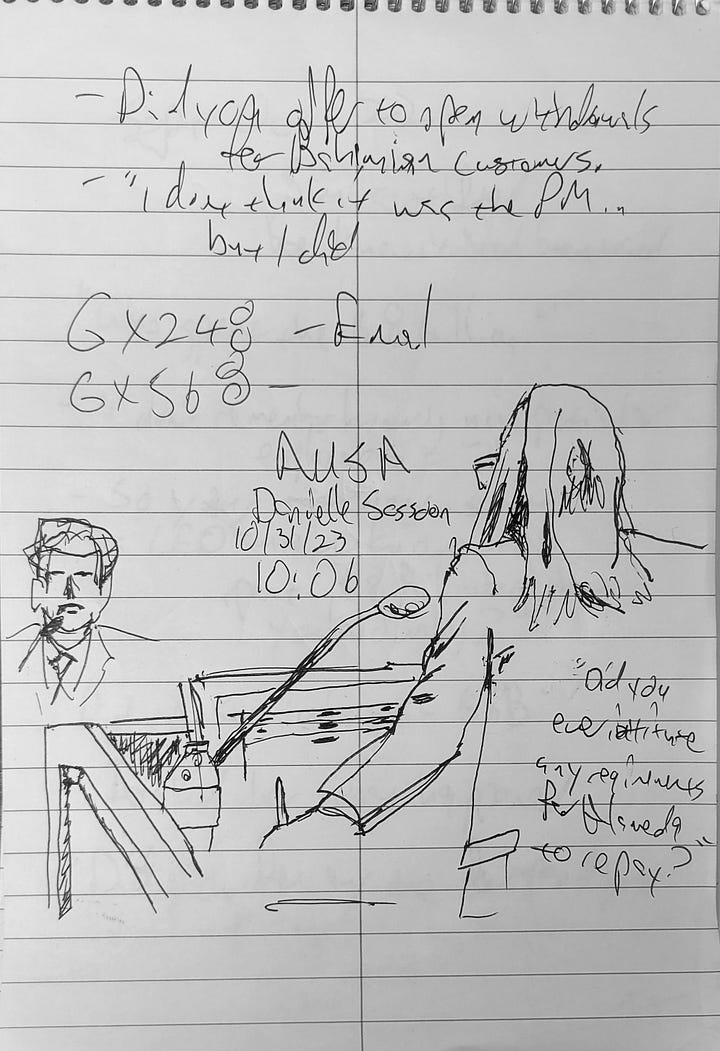 - Did you offer to open withdrawals
for Bahamian customers.
- "I don't think it was the PM...
but I did
GX248 - Email
GX568 -
AUSA
Danielle Sassoon
10/31/23
10:06
"Did you
ever institute
any requirements
for Alameda
to repay?"